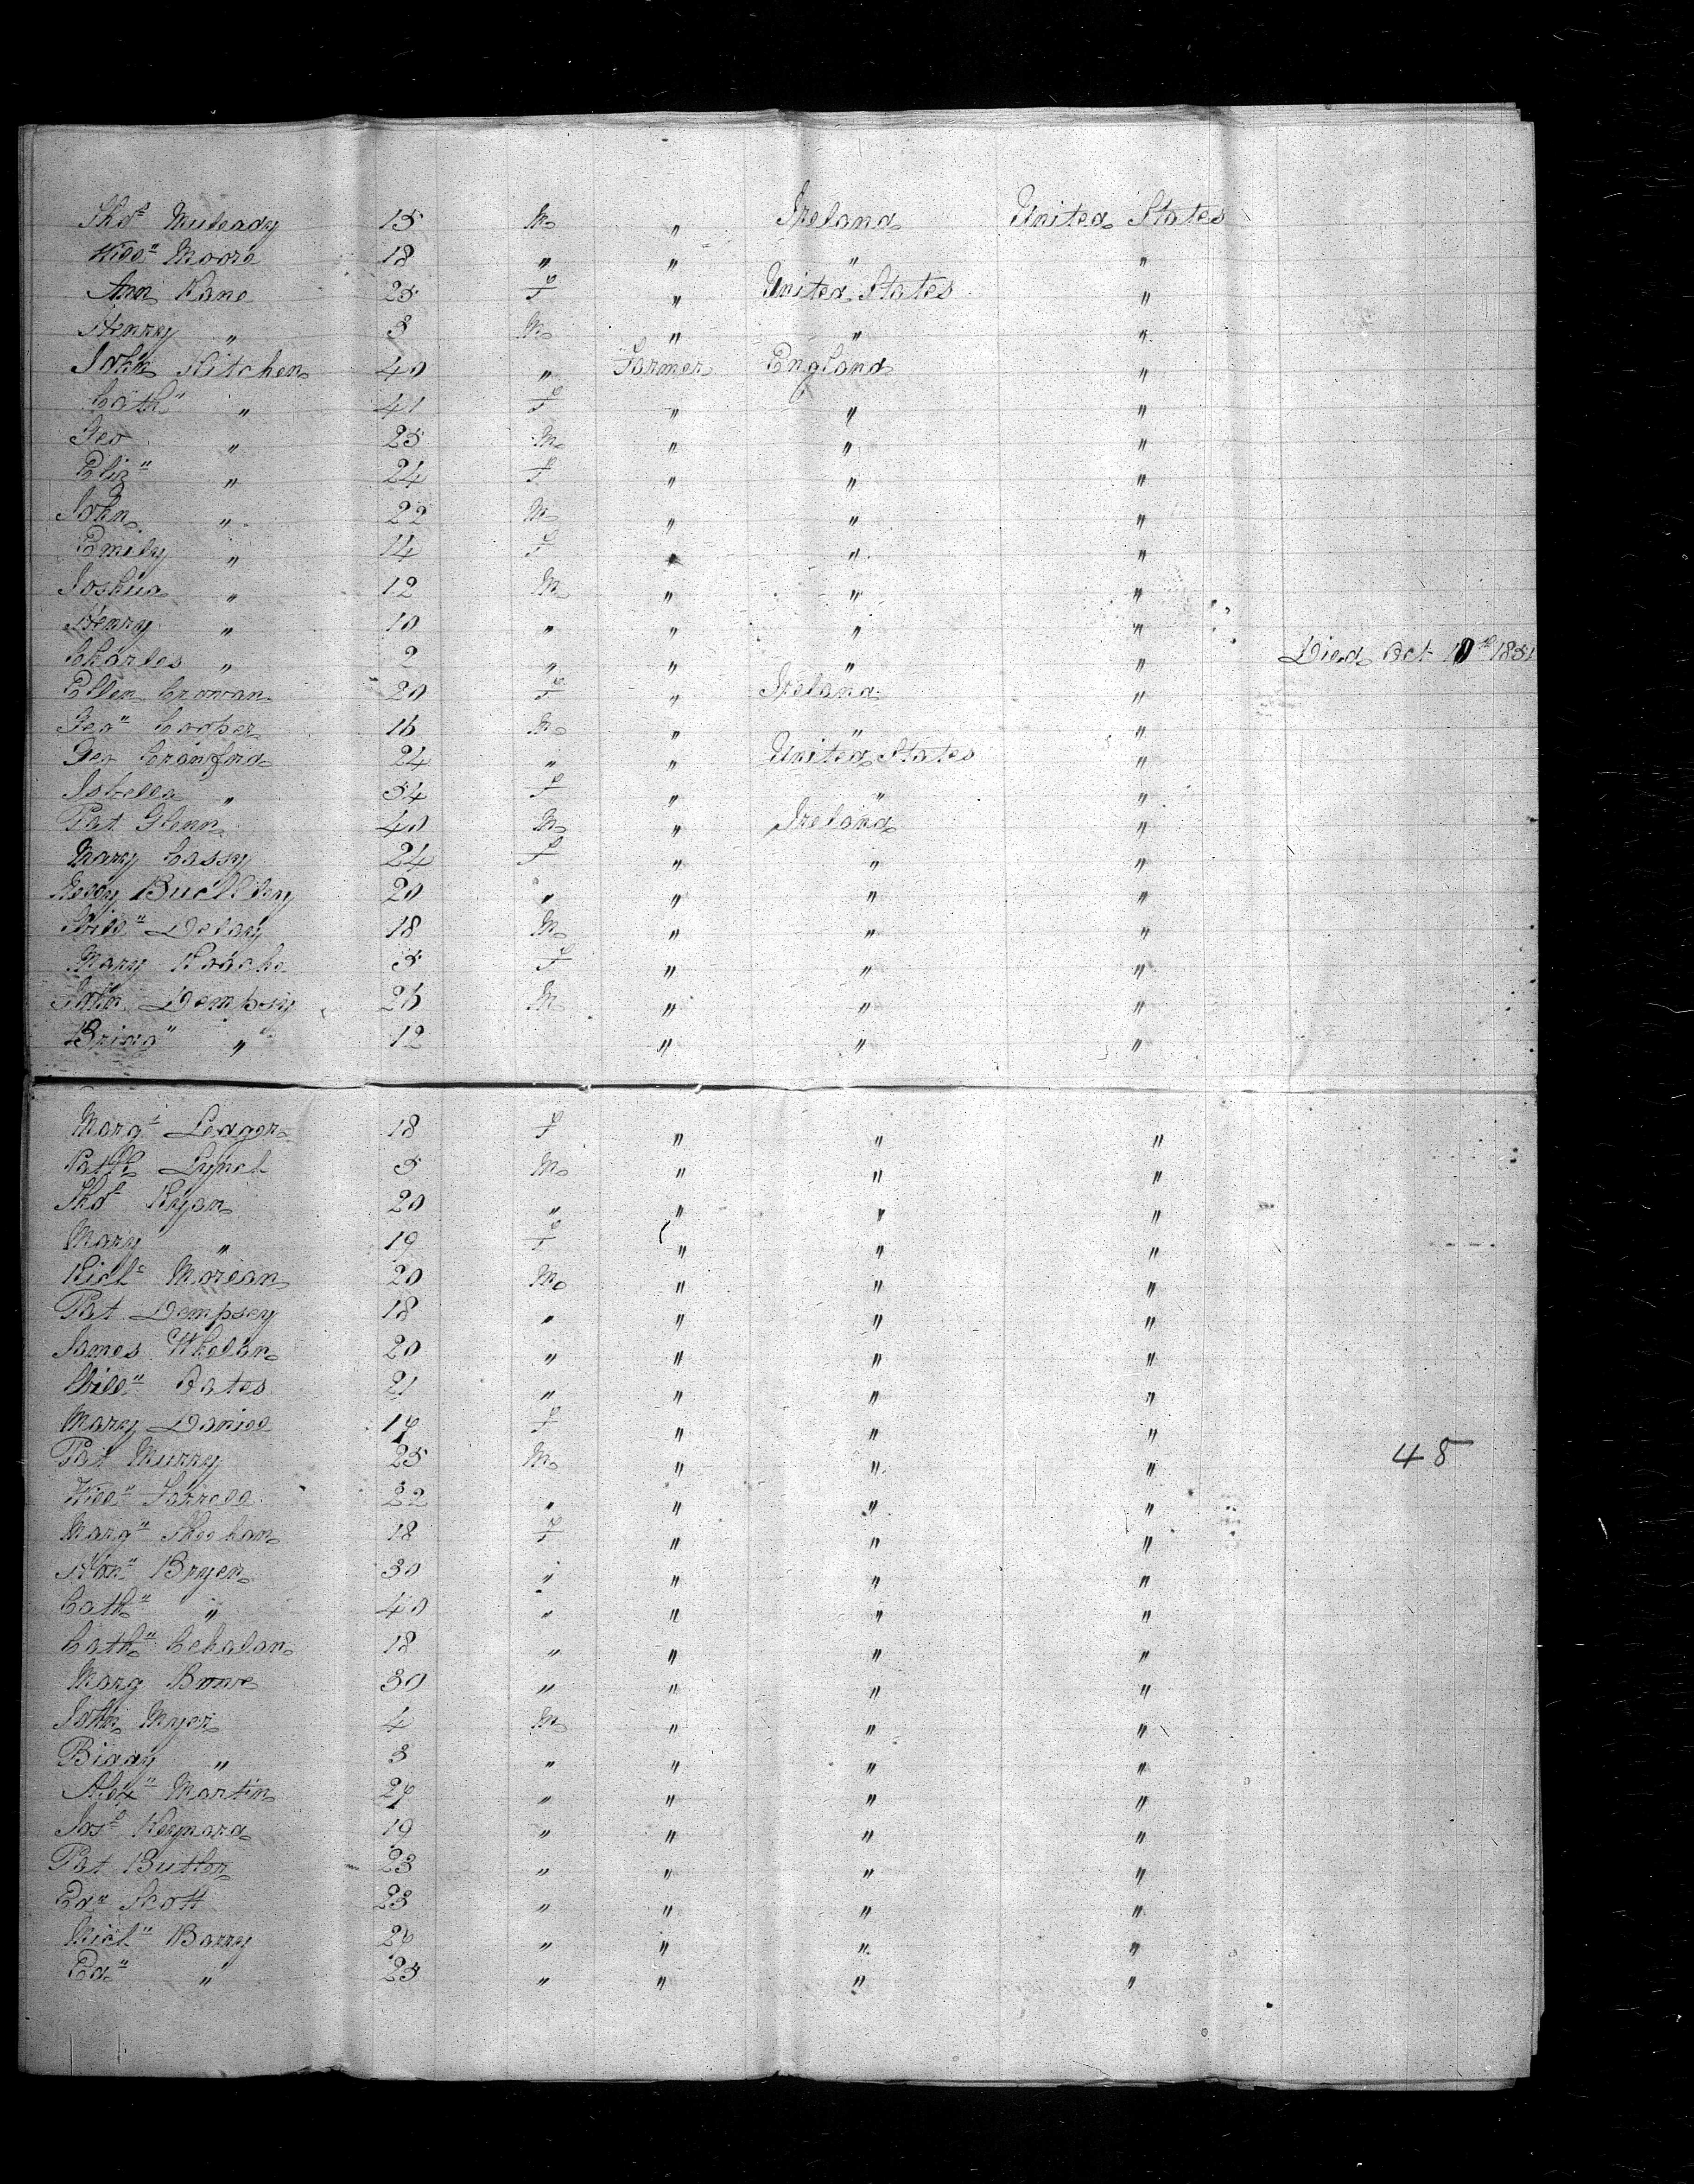 Thos Muleady 15 M " Ireland United States
Willm Moore 18 " " " "
Ann Kane 25 F " United States "
Henry " 3 M " " "
John Kitchen 40 " Farmer England "
Cath " 41 F " " "
Geo " 25 M " " "
Elizh " 24 F " " "
John " 22 M " " "
Emily " 14 F " " "
Joshua " 12 M " " "
Henry " 10 " " " "
Charles " 2 " " " " Died Oct 10th 1851
Ellen Crowan 20 F " Ireland "
Geo Cooper 16 M " " "
Geo Crawford 24 " " United States "
Isbella " 54 F " " "
Pat Glenn 40 M " Ireland "
Mary Cassy 24 F " " "
20 " " " "
Willm Delay 18 M " " "
Mary Roache 5 F " " "
John Dempsy 26 M " " "
Bridg " 12 " " "
Margt Ledger 18 F " " "
Patk Lynch 5 M " " "
Thos Ryan 20 " " " "
Mary " 19 F " " "
Richd Morean 20 M " " "
Pat Dempsey 18 " " " "
James Whelan 20 " " " "
Willm Oates 21 " " " "
Mary Daniel 17 F " " "
Pat Murry 25 M " " " 48
Willm Farrell 22 " " " "
Margt Sheehan 18 F " " "
Bryen 30 " " " "
Cath " 40 " " " "
Cath 18 " " " "
Marg 30 " " " "
John Myer 4 M " " "
Biddy " 3 " " " "
Alex Martin 27 " " " "
19 " " " "
Pat Butler 23 " " " "
Ed Scott 23 " " " "
Micl Barry 26 " " " "
Ed " 25 " " " "